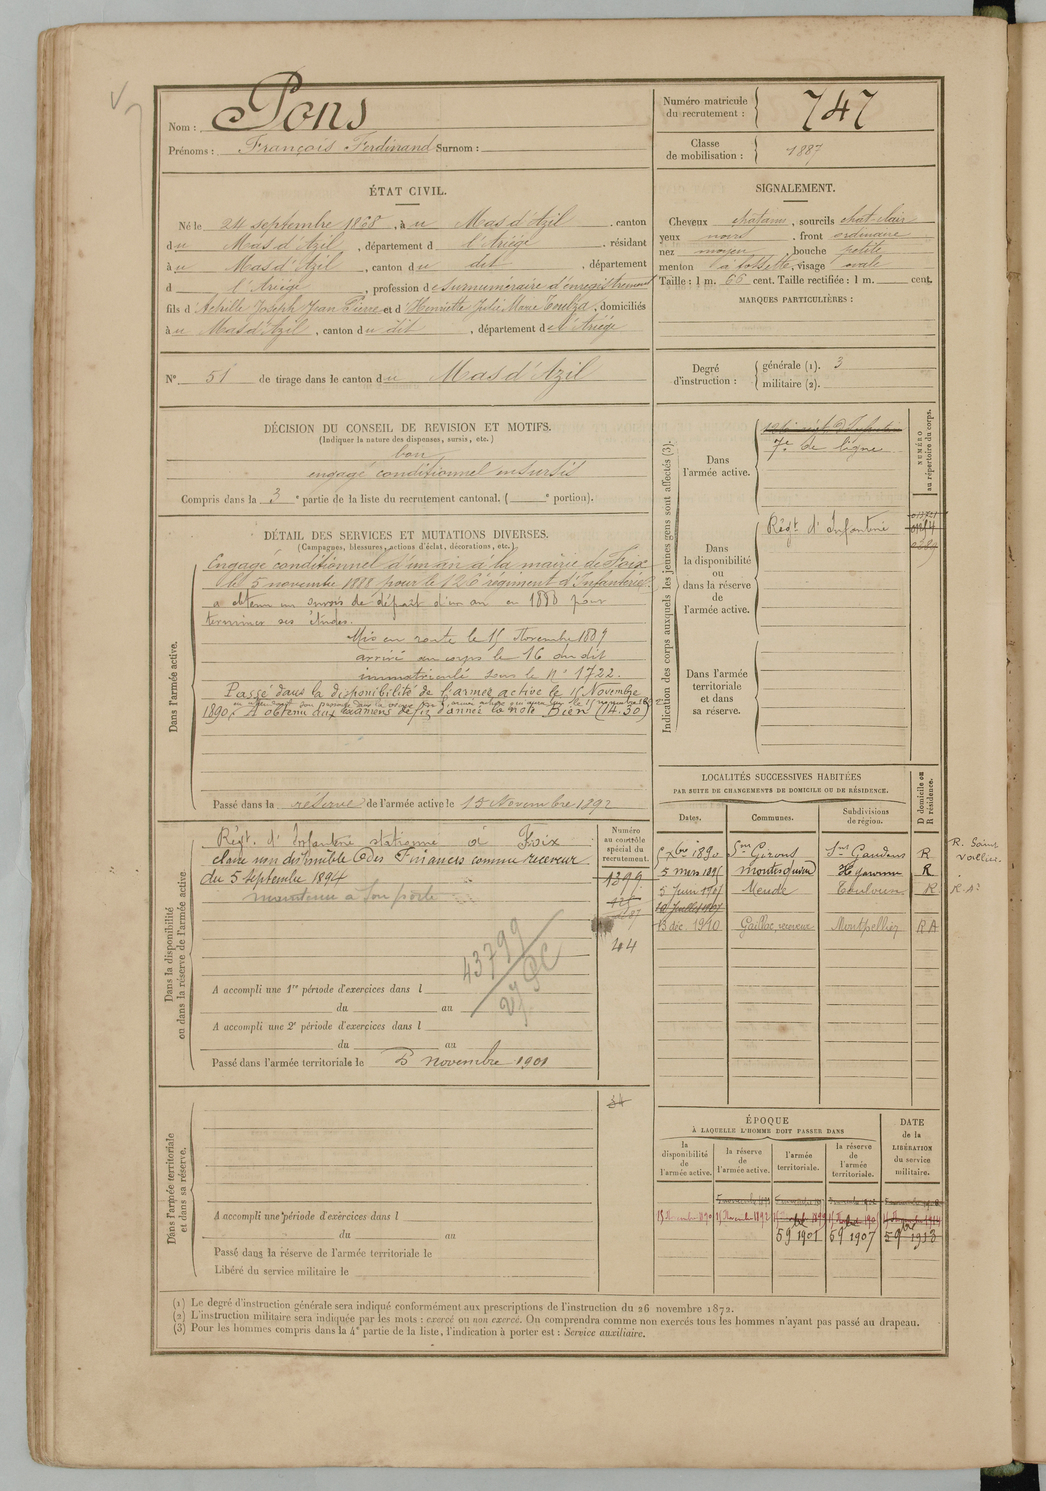 Nom : Pons
Prénoms : François Ferdinand Surnom :
Numéro matricule du recrutement : 747
Classe de mobilisation : 1887
ÉTAT CIVIL.
Né le 24 septembre 1868, à u Mas d'Azil, canton
du Mas d'Azil, département d l'Ariège, résidant
à u Mas d'Azil, canton du dit, département
d l'Ariège, profession de surnuméraire d'enregistrement
fils d'Achille Joseph Jean Pierre et d'Henriette Julie Marie Toulza, domiciliés
à u Mas d'Azil, canton du dit, département de l'Ariége
SIGNALEMENT.
Cheveux châtains, sourcils chat-clair
yeux noirs, front ordinaire
nez moyen, bouche petite
menton à fossette, visage ovale
Taille : 1 m. 66 cent. Taille rectifiée : 1 m. cent.
MARQUES PARTICULIÈRES :
N° 51 de tirage dans le canton du Mas d'Azil
Degré d'instruction : générale (1). 3
militaire (2).
DÉCISION DU CONSEIL DE REVISION ET MOTIFS.
(Indiquer la nature des dispenses, sursis, etc.)
bon
engagé conditionnel en sursis
Compris dans la 3e partie de la liste du recrutement cantonal, ( e portion).
DÉTAIL DES SERVICES ET MUTATIONS DIVERSES.
(Campagnes, blessures, actions d'éclat, décorations, etc.)
Dans l'armée active.
Engagé conditionnel d'un an à la mairie de Foix
le 5 novembre 1888 pour le 126e régiment d'Infanterie
a obtenu un sursis de départ d'un an en 1888 pour
terminer ses études.
Mis en route le 15 Novembre 1889
arrivé au corps le 16 du dit
immatriculé sous le N° 1722.
Passé dans la disponibilité de l'armée active le 15 Novembre
1890. A obtenu aux examens de fin d'année la note Bien (14.30)
Passé dans la réserve de l'armée active le 15 Novembre 1892
Indication des corps auxquels les jeunes gens sont affectés (3).
NUMÉRO au répertoire du corps.
Dans l'armée active.
7e de ligne
Dans la disponibilité ou dans la réserve de l'armée active.
Régt. d'Infanterie
Dans l'armée territoriale et dans sa réserve.
Dans la disponibilité ou dans la réserve de l'armée active
Numéro au contrôle spécial du recrutement.
Régt. d'Infanterie stationné à Foix
classé non disponible des Finances comme receveur
du 5 septembre 1894
maintenu à son poste
1399
44
43799
A accompli une 1re période d'exercices dans l
du au
A accompli une 2e période d'exercices dans l
du au
Passé dans l'armée territoriale le 5 novembre 1901
LOCALITÉS SUCCESSIVES HABITÉES
PAR SUITE DE CHANGEMENTS DE DOMICILE OU DE RÉSIDENCE.
Dates. Communes. Subdivisions de région. D domicile ou R résidence.
5 Xbre 1890 St Girons St Gaudens R
5 mars 1895 Montesquieu Hte Garonne R
5 Juin 1901 Mende Toulouse R
13 déc. 1910 Gaillac, receveur Montpellier R A
Dans l'armée territoriale et dans sa réserve.
34
A accompli une période d'exercices dans l
du au
Passé dans la réserve de l'armée territoriale le
Libéré du service militaire le
ÉPOQUE
À LAQUELLE L'HOMME DOIT PASSER DANS
la disponibilité de l'armée active.
la réserve de l'armée active.
l'armée territoriale.
la réserve de l'armée territoriale.
DATE de la LIBÉRATION du service militaire.
15 Novembre 1890 15 Novembre 1892
5 9 1901 5 9 1907 5 9bre 1913
(1) Le degré d'instruction générale sera indiqué conformément aux prescriptions de l'instruction du 26 novembre 1872.
(2) L'instruction militaire sera indiquée par les mots : exercé ou non exercé. On comprendra comme non exercés tous les hommes n'ayant pas passé au drapeau.
(3) Pour les hommes compris dans la 4e partie de la liste, l'indication à porter est : Service auxiliaire.